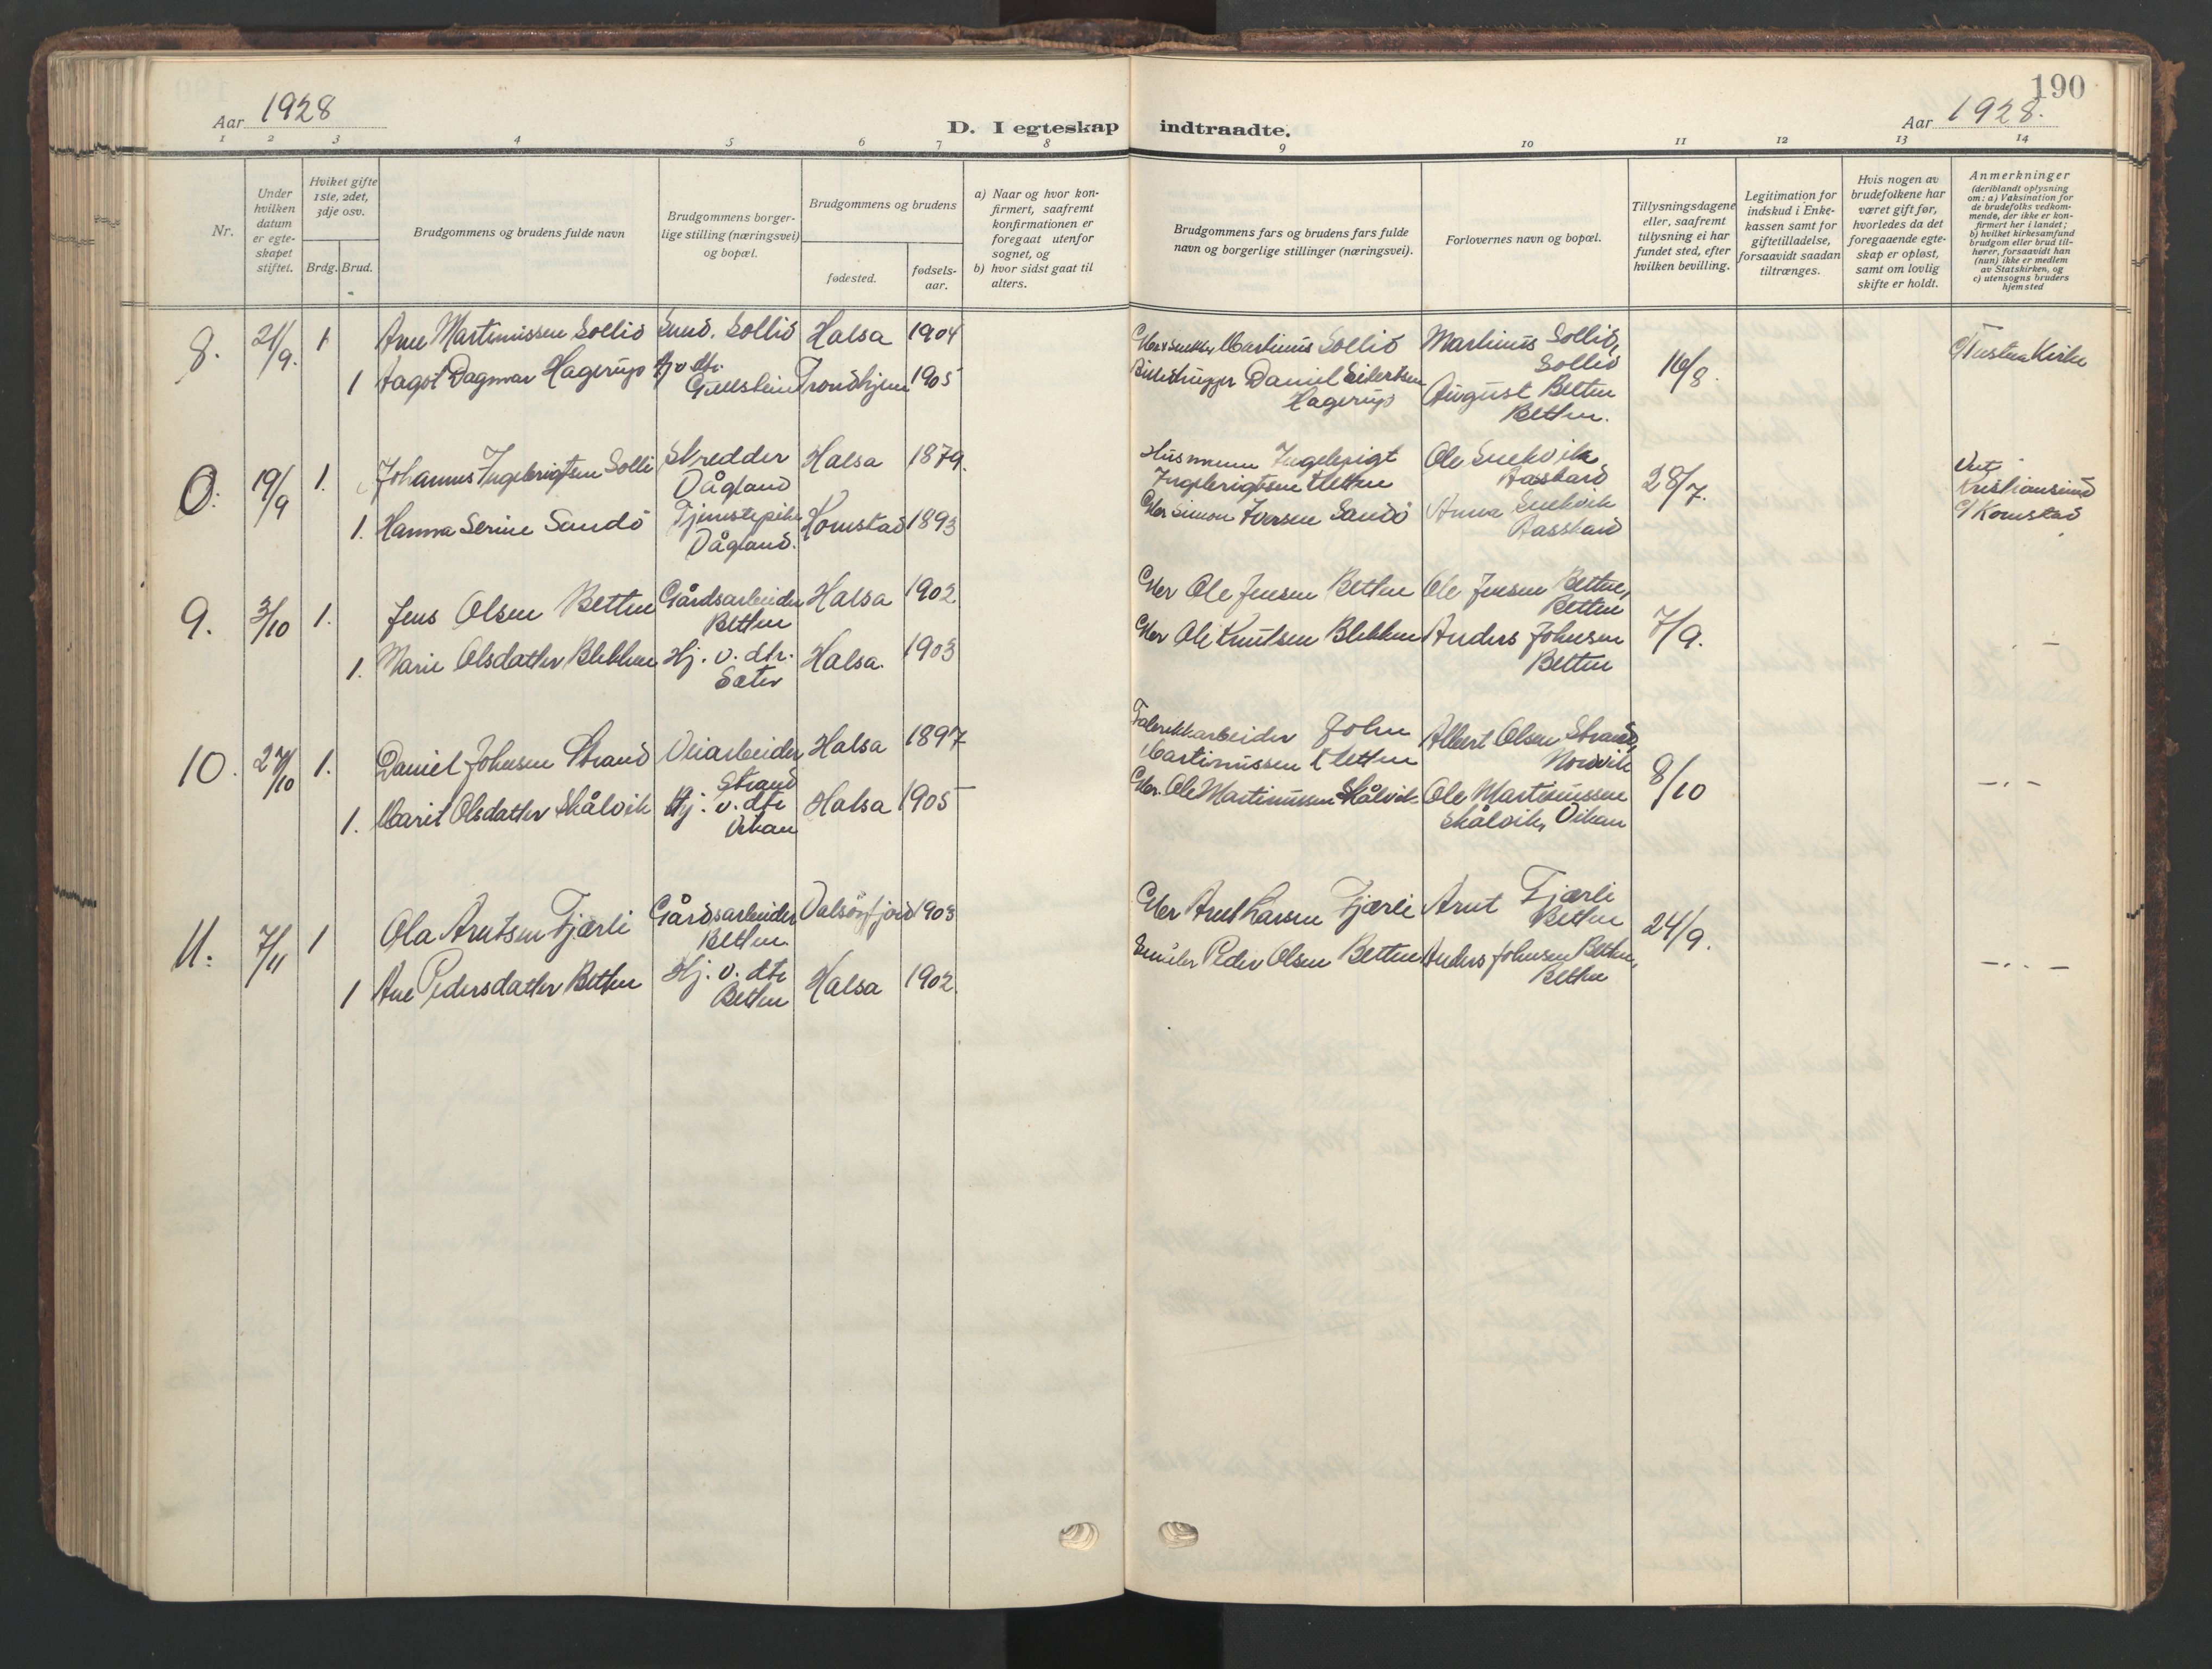 190
Aar 1928
D. I egteskap indtraadte.
Aar 1928.
1 2 3 4 5 6 7 8 9 10 11 12 13 14
Nr.
Under hvilken datum er egte-skapet stiftet.
Hviket gifte 1ste, 2det, 3dje osv.
Brdg. Brud.
Brudgommens og brudens fulde navn
Brudgommens borger-
lige stilling (næringsvei)
og bopæl.
Brudgommens og brudens
fødested.
fødsels-
aar.
a) Naar og hvor kon-
firmert, saafremt
konfirmationen er
foregaat utenfor
sognet, og
b) hvor sidst gaat til
alters.
Brudgommens fars og brudens fars fulde
navn og borgerlige stillinger (næringsvei).
Forlovernes navn og bopæl.
Tillysningsdagene
eller, saafremt
tillysning ei har
fundet sted, efter
hvilken bevilling.
Legitimation for
indskud i Enke-
kassen samt for
giftetilladelse,
forsaavidt saadan
tiltrænges.
Hvis nogen av
brudefolkene har
været gift før,
hvorledes da det
foregaaende egte-
skap er opløst,
samt om lovlig
skifte er holdt.
Anmerkninger
(deriblandt oplysning
om: a) Vaksination for
de brudefolks vedkom-
mende, der ikke er kon-
firmert her i landet;
b) hvilket kirkesamfund
brudgom eller brud til-
hører, forsaavidt han
(hun) ikke er medlem
av Statskirken, og
c) utensogns bruders
hjemsted
8. 21/9. 1 Arne Martinussen Sollid Sollid Halsa 1904 Martinus Sollid Martinus Sollid, Sollid 16/8. Tustna Kirke
1 Aagot Dagmar Hagerup Gullstein Trondhjem 1905 Daniel Eilertsen Hagerup August Betten Betten.
0: 19/9 1. Johannes Ingebrigtsen Solli Skredder Dågland Halsa 1879. Husmann Ingebrigt Ingebrigtsen Kletten Ole Snekvik Aasskard 28/7. Kristiansund
1. Hanna Serine Sandö Tjenestepike Dågland. 1893 Gbr Simon Iversen Sandö Anna Snekvik Aasskard
9. 3/10 1. Jens Olsen Betten Gårdsarbeider Betten Halsa 1902 Gbr Ole Jensen Betten Ole Jensen Betten, Betten 7/9.
1. Marie Olsdatter Blekken Hj. v. dtr. Sæter Halsa. 1903 Gbr Ole Knutsen Blekken Anders Johnsen Betten
10. 27/10 1. Daniel Johnsen Strand Veiarbeider Strand Halsa 1897 Fabrikkarbeider John Martinussen Kletten Albert Olsen Strand, Nordvik 8/10
1. Marit Olsdatter Skålvik Hj. v. dtr Vikan Halsa 1905 Gbr. Ole Martinussen Skålvik Ole Martinussen Skålvik, Vikan
11. 7/11 1 Ola Arntsen Fjærli Gårdsarbeider Betten Valsöyfjord 1903 Gbr Arnt Larsen Fjærli Arnt Fjærli Betten 24/9.
1 Ane Pedersdatter Betten Hj. v. dtr Betten Halsa 1902. Peder Olsen Betten Anders Johnsen Betten, Betten